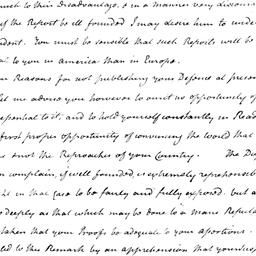 much to their disadvantage, & in a manner very dishono
if the Report be ill founded I may desire him to unde
dent. You must be sensible that such Reports will be
al to you in America than in Europe.
n Reasons for not publishing your Defence at presen
let me advise you however to omit no opportunity of
essential to it; and to hold yourself constantly in Read
first proper opportunity of convincing the world that
s not the Reproaches of your Country. The De
u complain, if well founded is extremely reprehensible
ht in that case to be fairly and fully exposed. but a
o deeply as that which may be done to a Mans Reputa
taken that your Proofs be adequate to your assertions.
led to this Remark by an apprehension that your